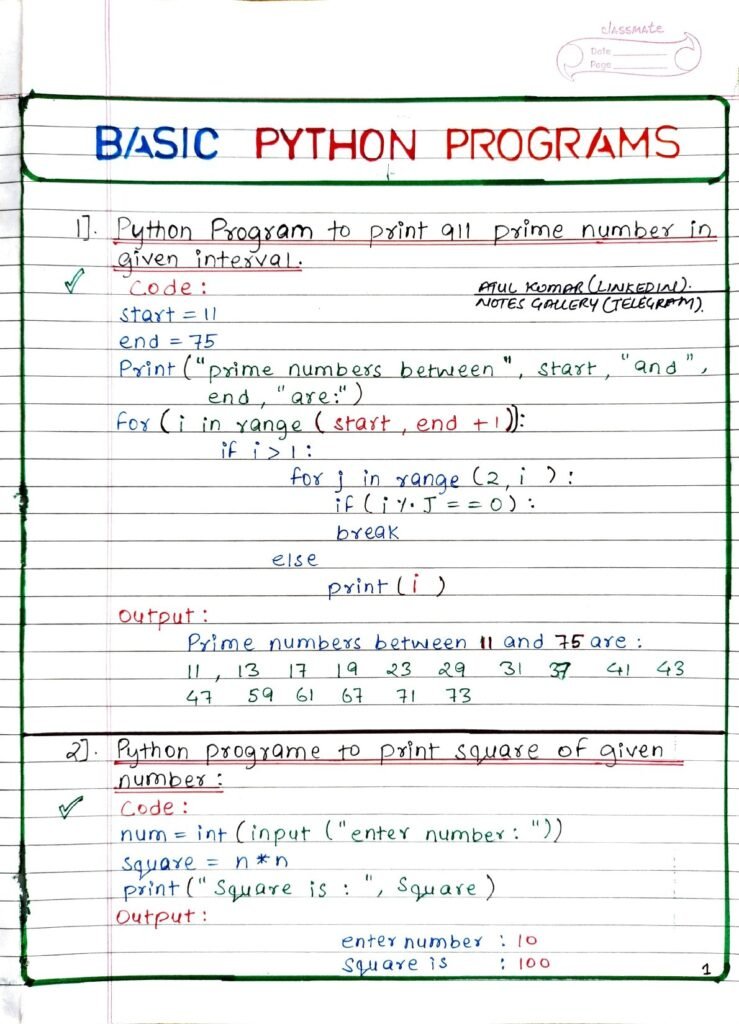 classmate
Date
Page
BASIC PYTHON PROGRAMS
1]. Python Program to print all prime number in
given interval.
Code:
ATUL KUMAR (LINKEDIN).
NOTES GALLERY (TELEGRAM).
start = 11
end = 75
Print ("prime numbers between", start, "and",
end, "are:")
For (i in range (start, end +1)):
if i > 1:
for j in range (2, i ):
if (i % J == 0):
break
else
print (i )
Output:
Prime numbers between 11 and 75 are:
11, 13 17 19 23 29 31 37 41 43
47 59 61 67 71 73
2]. Python programe to print square of given
number:
Code:
num = int (input ("enter number: "))
square = n*n
print (" Square is : ", Square)
Output:
enter number : 10
Square is : 100
1